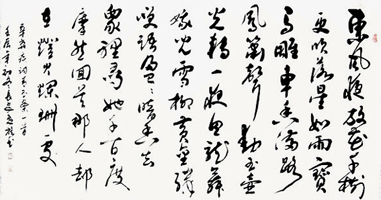 東風夜放花千樹
更吹落星如雨寶
馬雕車香滿路
鳳簫聲動玉壺
光轉一夜魚龍舞
蛾兒雪柳黃金縷
笑語盈盈暗香去
衆裡尋她千百度
驀然回首那人却
在燈火闌珊處
辛棄疾詞青玉案一首